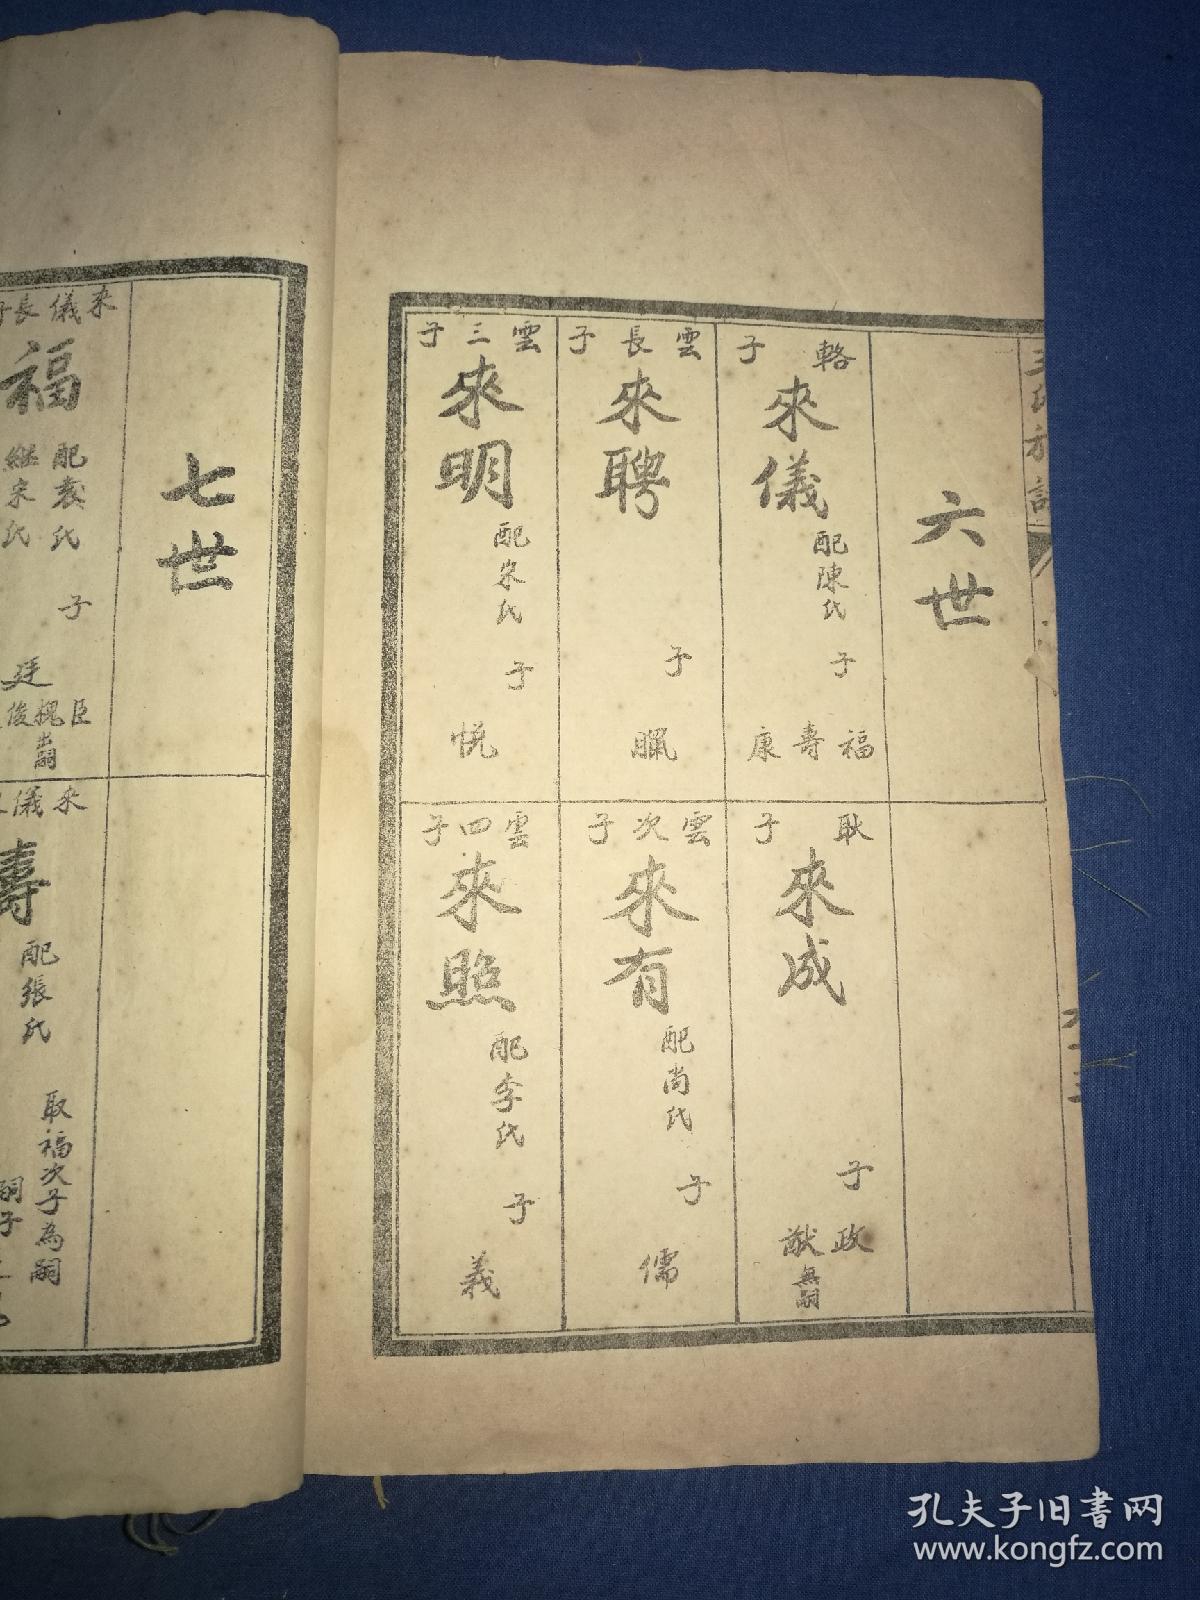 王氏族譜
六世
輅子
來儀
配陳氏
子
福壽康
耿子
來成
子
政猷
無嗣
雲長子
來聘
子
雲次子
來有
配尚氏
子
儒
雲三子
來明
配宋氏
子
悅
雲四子
來照
配李氏
子
義
七世
來儀長子
福
配氏
繼宋氏
子
廷
臣槐俊
出嗣
來儀
壽
配張氏
取福次子為嗣
嗣子
孔夫子旧书网
www.kongfz.com